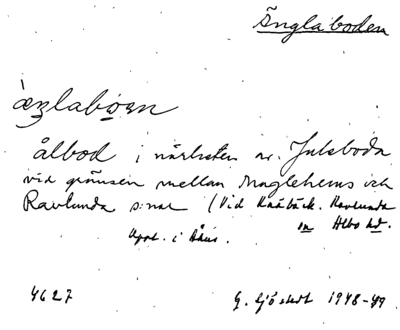 Änglaboden
ålbod i närheten av Juleboda
vid gränsen mellan Maglehems och
Ravlunda s:nar (Vid Knäbäck. Ravlunda
sn Albo hd.
Uppt. i Åhus.
4627 G. Sjöstedt 1948-49